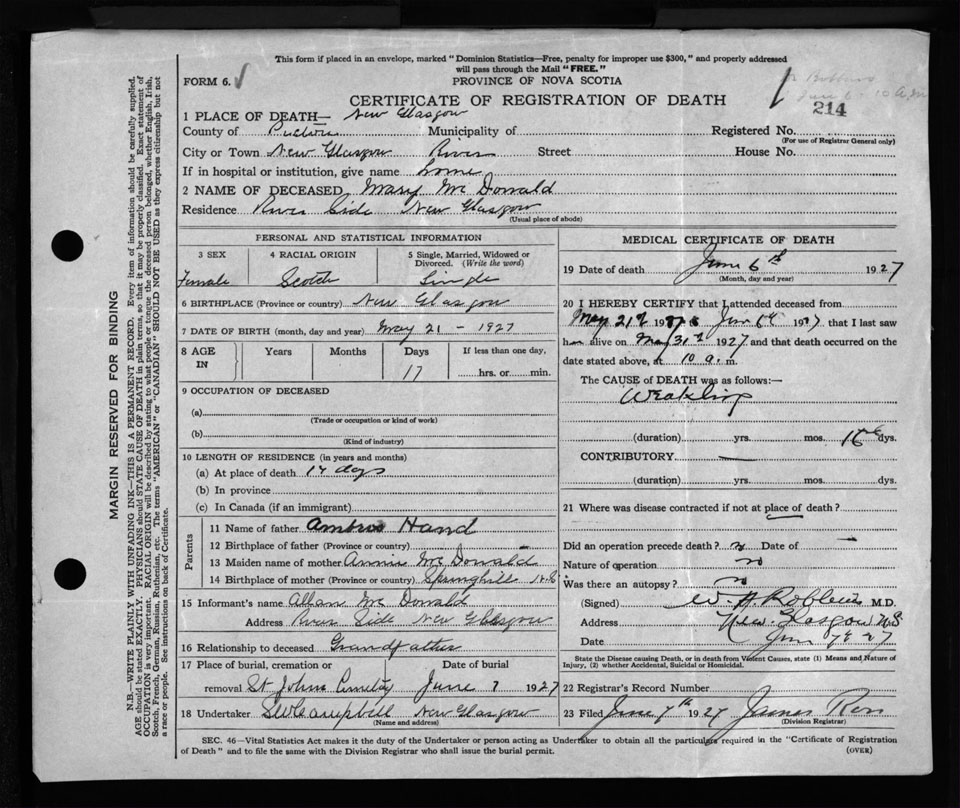 This form if placed in an envelope, marked "Dominion Statistics—Free, penalty for improper use $300," and properly addressed
will pass through the Mail "FREE."
FORM 6.
PROVINCE OF NOVA SCOTIA
CERTIFICATE OF REGISTRATION OF DEATH
214
1 PLACE OF DEATH— New Glasgow
County of Pictou Municipality of Registered No.
(For use of Registrar General only)
City or Town New Glasgow River Street House No.
If in hospital or institution, give name home
2 NAME OF DECEASED Mary McDonald
Residence River Side New Glasgow
(Usual place of abode)
PERSONAL AND STATISTICAL INFORMATION
3 SEX 4 RACIAL ORIGIN 5 Single, Married, Widowed or Divorced. (Write the word)
Female Scotch Single
6 BIRTHPLACE (Province or country) New Glasgow
7 DATE OF BIRTH (month, day and year) May 21 – 1927
8 AGE IN Years Months Days If less than one day,
17 hrs. or min.
9 OCCUPATION OF DECEASED
(a)
(Trade or occupation or kind of work)
(b)
(Kind of industry)
10 LENGTH OF RESIDENCE (in years and months)
(a) At place of death 17 days
(b) In province
(c) In Canada (if an immigrant)
Parents
11 Name of father Hand
12 Birthplace of father (Province or country)
13 Maiden name of mother Annie McDonald
14 Birthplace of mother (Province or country) Springhill N.S
15 Informant's name Allan McDonald
Address River Side New Glasgow
16 Relationship to deceased Grandfather
17 Place of burial, cremation or Date of burial
removal St Johns Cemetery June 7 1927
18 Undertaker Campbell New Glasgow
(Name and address)
MEDICAL CERTIFICATE OF DEATH
19 Date of death June 6th 1927
(Month, day and year)
20 I HEREBY CERTIFY that I attended deceased from
May 21st 1927 to June 6th 1927 that I last saw
her alive on May 31st 1927 and that death occurred on the
date stated above, at 10 a. m.
The CAUSE of DEATH was as follows:—
Weakling
(duration) yrs. mos. 16 dys.
CONTRIBUTORY —
(duration) yrs. mos. dys.
21 Where was disease contracted if not at place of death?
Did an operation precede death? no Date of —
Nature of operation no
Was there an autopsy? no
(Signed) W. H. M.D.
Address New Glasgow N.S
Date June 7th 27
State the Disease causing Death, or in death from Violent Causes, state (1) Means and Nature of
Injury, (2) whether Accidental, Suicidal or Homicidal.
22 Registrar's Record Number
23 Filed June 7th 1927 James
(Division Registrar)
SEC. 46—Vital Statistics Act makes it the duty of the Undertaker or person acting as Undertaker to obtain all the particulars required in the "Certificate of Registration
of Death" and to file the same with the Division Registrar who shall issue the burial permit.
(OVER)
MARGIN RESERVED FOR BINDING
N.B.—WRITE PLAINLY WITH UNFADING INK—THIS IS A PERMANENT RECORD. Every item of information should be carefully supplied.
AGE should be stated EXACTLY. PHYSICIANS should STATE CAUSE OF DEATH in plain terms, so that it may be properly classified. Exact statement of
OCCUPATION is very important. RACIAL ORIGIN will be described by stating to what people or tongue the deceased person belonged, whether English, Irish,
Scotch, French, German, Russian, Ruthenian, etc. The terms "AMERICAN" or "CANADIAN" SHOULD NOT BE USED as they express citizenship but not
a race or people. See instructions on back of Certificate.